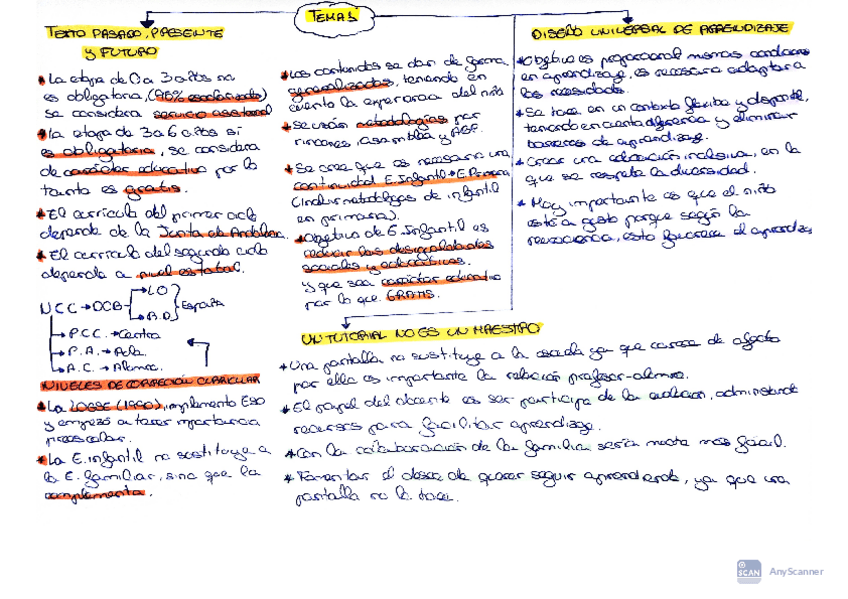 TEMAS
TEXTO PASADO, PRESENTE
y FUTURO
* La etapa de 0 a 3 años no
es obligatoria, (95% escolarizado)
se considera servicio asistencial
* La etapa de 3 a 6 años sí
es obligatoria, se considera
de carácter educativo por lo
tanto es gratis.
* El currículo del primer ciclo
depende de la Junta de Andaluc.
* El currículo del segundo ciclo
depende a nivel estatal.
NCC → DCB → LO
A.D } España
→ P.C.C. → Centro
→ P.A. → Aula.
→ A.C. → Alumno.
NIVELES DE CORRECIÓN CURRICULAR
* La LOGSE (1990), implemento ESO
y empezó a tener importancia
preescolar.
* La E. infantil no sustituye a
la E. familiar, sino que la
complementa.
* Los contenidos se dan de forma
generalizadas, teniendo en
cuenta la experiencia del niño
* Se usan metodologías por
rincones, asamblea y
* Se cree que es necesario una
continuidad E. Infantil → E. Primaria
(Incluir metodologías de infantil
en primaria).
* Objetivo de E. Infantil es
reducir las desigualdades
sociales y
y que sea carácter educativo
por lo que GRATIS.
DISEÑO UNIVERSAL DE APRENDIZAJE
* Objetivo es proporcionar mismas condiciones
en aprendizaje, es necesario adaptar a
las necesidades.
* Se tiene en un contexto flexible y
teniendo en cuenta diferencia y eliminar
barreras de aprendizaje.
* Crear una educación inclusiva, en la
que se respeta la diversidad.
* Muy importante es que el niño
esté a gusto porque según la
neurociencia, esto favorece el aprendiz
UN TUTORIAL NO ES UN MAESTRO
* Una pantalla no sustituye a la escuela ya que carece de afecto
por ello es importante la relación profesor-alumno.
* El papel del docente es ser partícipe de la evolución, administrando
recursos para facilitar aprendizaje.
* Con la colaboración de la familia sería mucho más fácil.
* Fomentar el deseo de querer seguir aprendiendo, ya que una
pantalla no lo hace.
SCAN AnyScanner